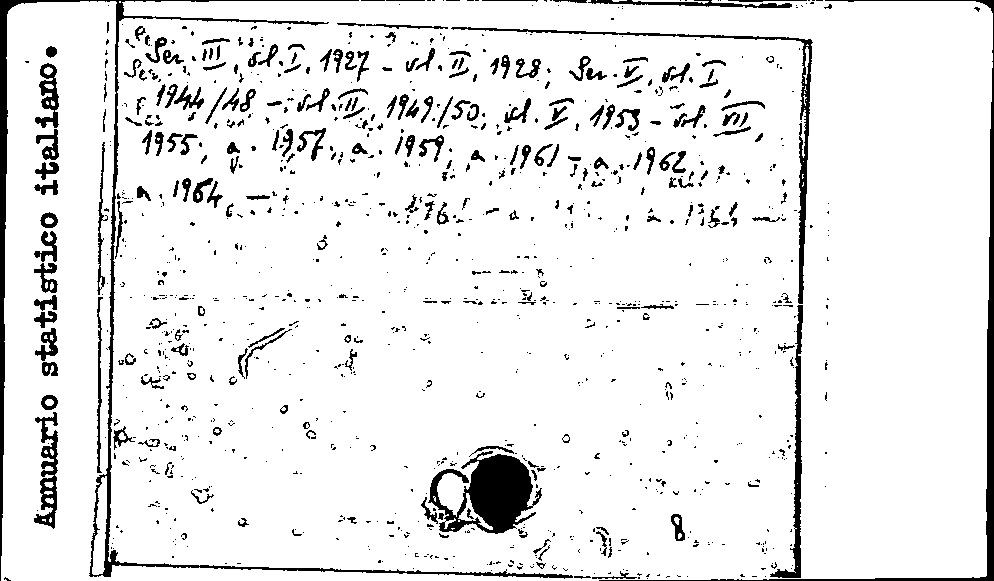 Annuario statistico italiano.
Ser. III, vl. I, 1927 - vl. II, 1928; Ser. V, vl. I,
1944/48 - vl. II, 1949/50; vl. V, 1953 - vl. VII,
1955; a. 1957; a. 1959; a. 1961 - a. 1962
a. 1964 -
8